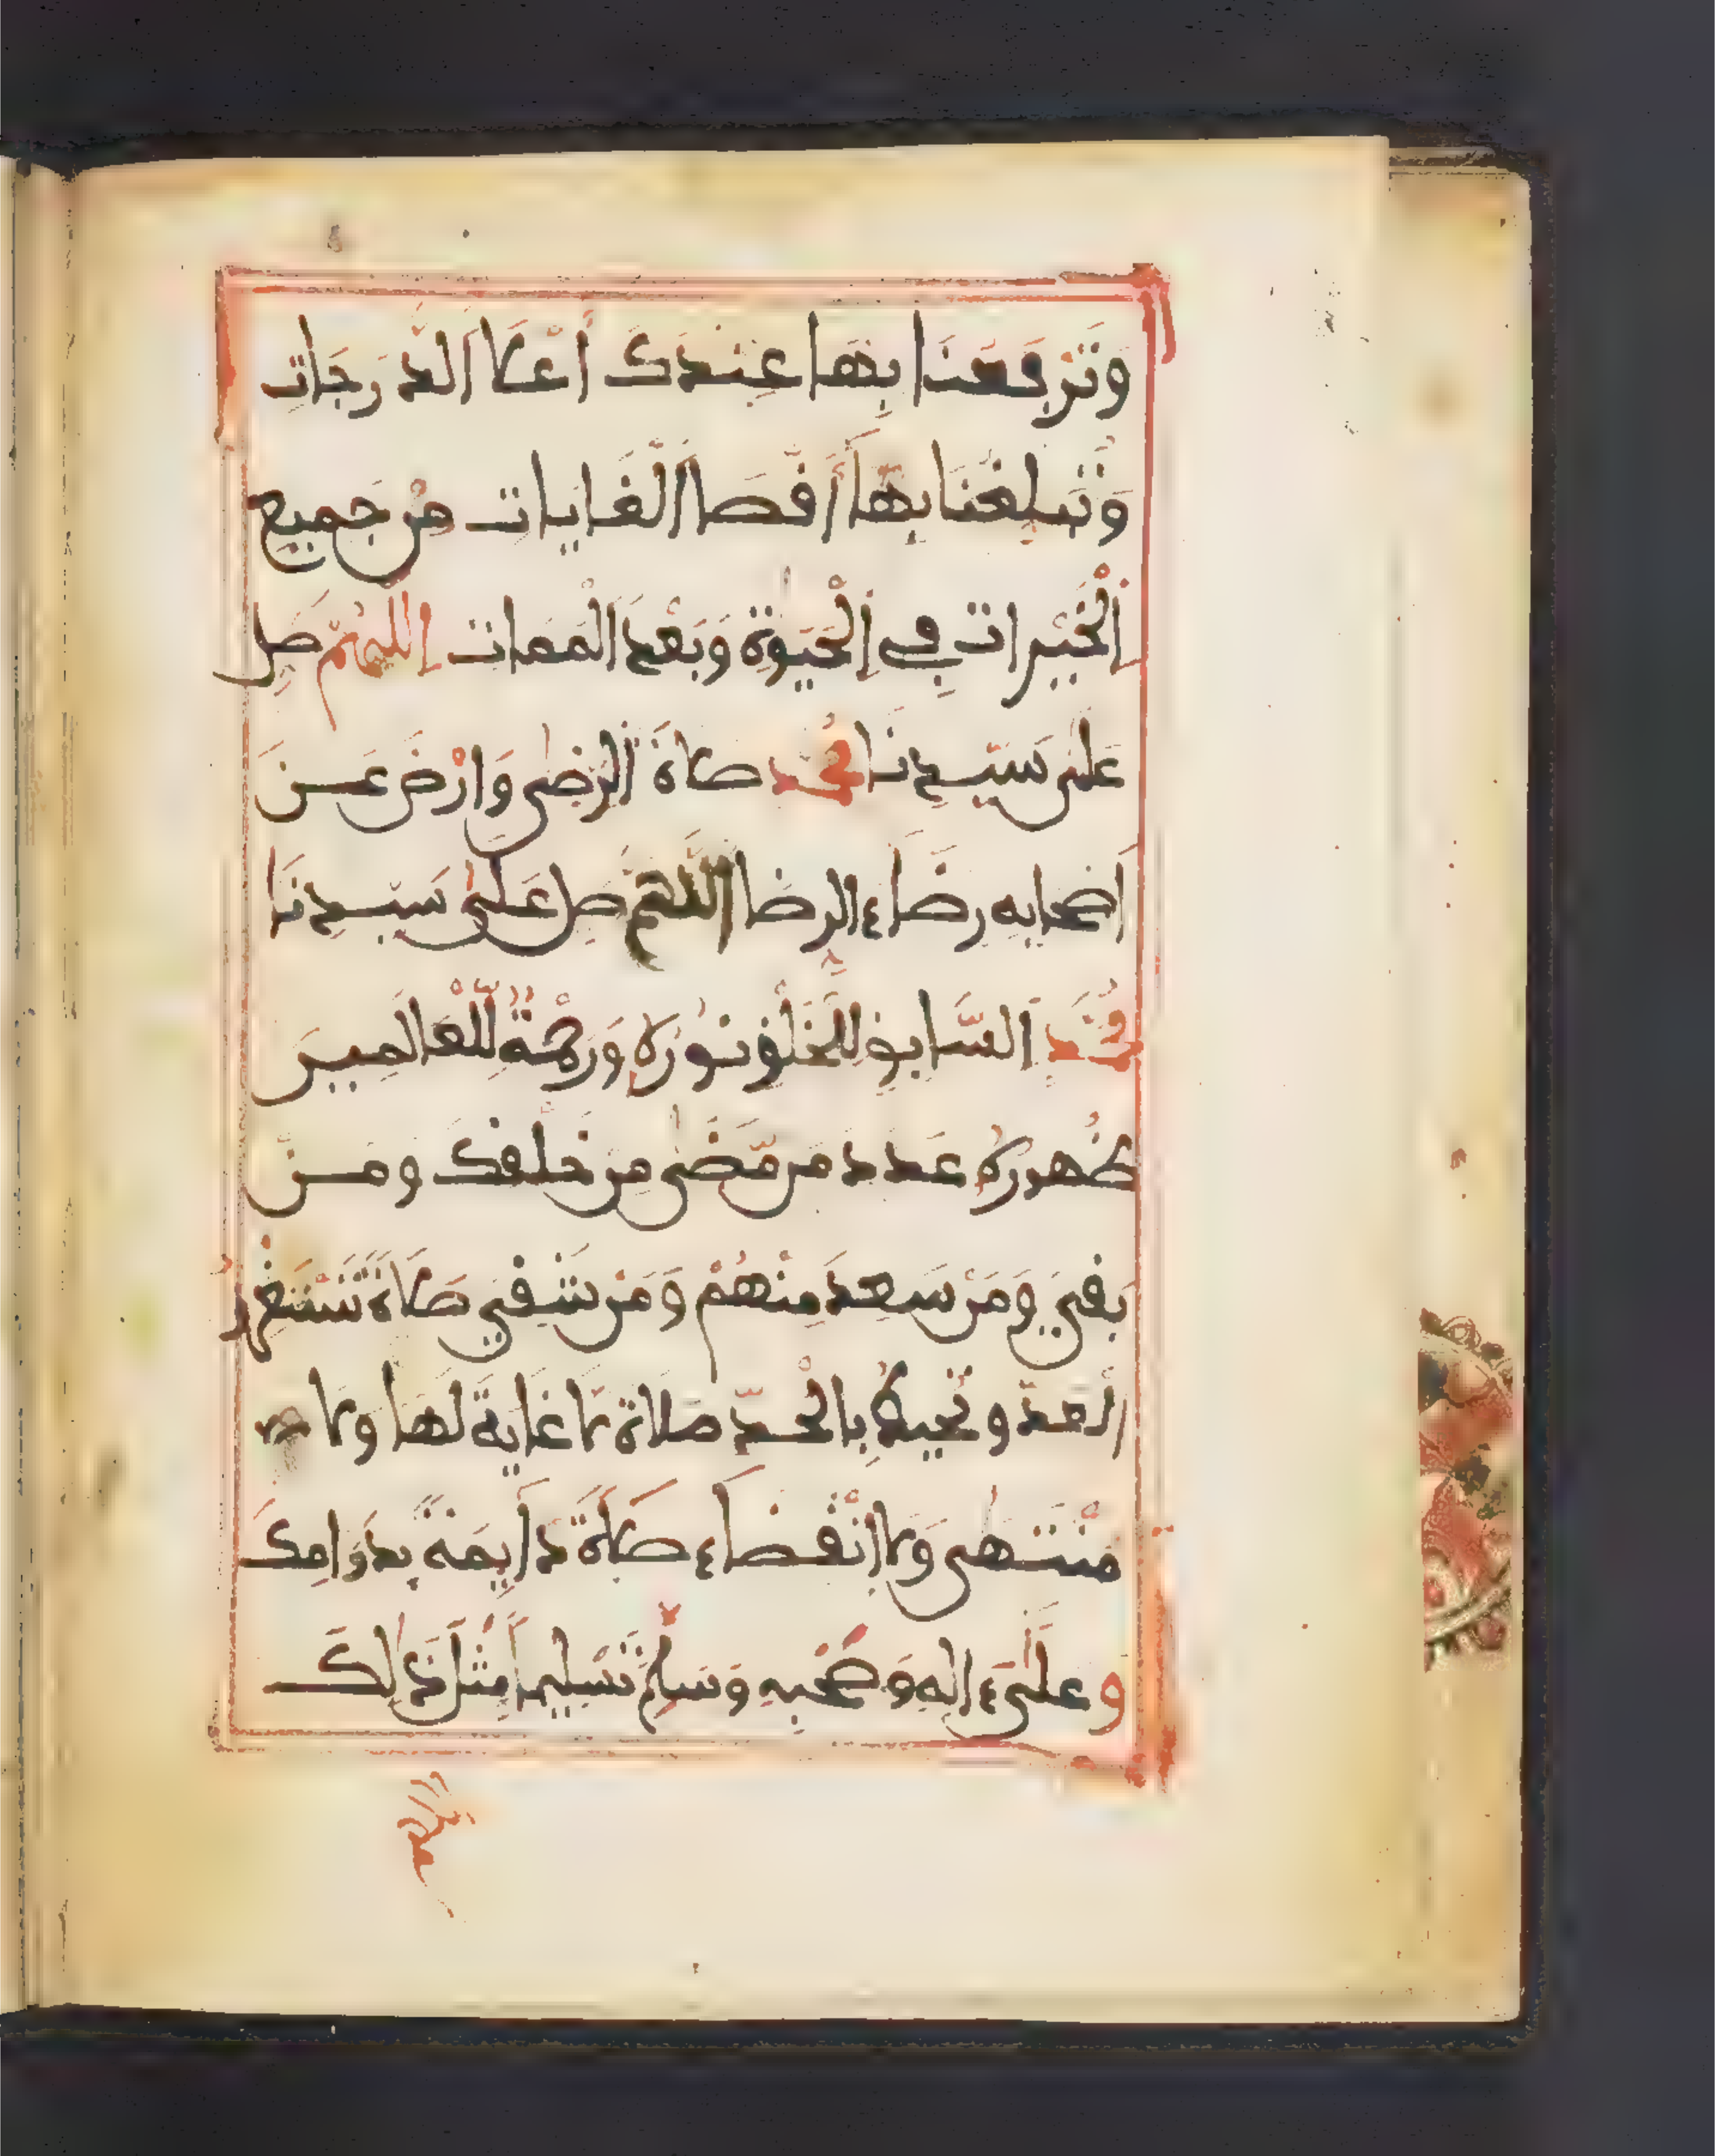 وَتَرْفَعُنَا بِهَا عِندَكَ أَعْلَا الدَّرَجَاتِ
وَتُبَلِّغُنَا بِهَا أَقْصَا الْغَايَاتِ مِن جَمِيعِ
الْخَيْرَاتِ فِي الْحَيَوٰةِ وَبَعْدَ الْمَمَاتِ اللَّهُمَّ صَلِّ
عَلَى سَيِّدِنَا مُحَمَّد صَلَاةَ الرِّضَى وَارْضَ عَن
اصْحَابِهِ رِضَاءَ الرِّضَا اللَّهُمَّ صَلِّ عَلَى سَيِّدِنَا
مُحَمَّدٍ السَّابِقِ لِلْخَلْقِ نُورُهُ وَرَحْمَةٌ لِّلْعَالَمِينَ
ظُهُورُهُ عَدَدَ مَن مَّضَى مِنْ خَلْقِكَ وَمَن
بَقِيَ وَمَنْ سَعِدَ مِنْهُمْ وَمَنْ شَقِيَ صَلَاةً تَسْتَغْرِقُ
الْعَدَّ وَتُحِيطُ بِالْحَدِّ صَلَاةً لَا غَايَةَ لَهَا وَلَا
مُنْتَهَى وَلَا انْقِضَاءَ صَلَاةً دَايِمَةً بِدَوَامِكَ
وَعَلَى ءَالِهِ وَصَحْبِهِ وَسَلِّمْ تَسْلِيمًا مِثْلَ ذَلِكَ